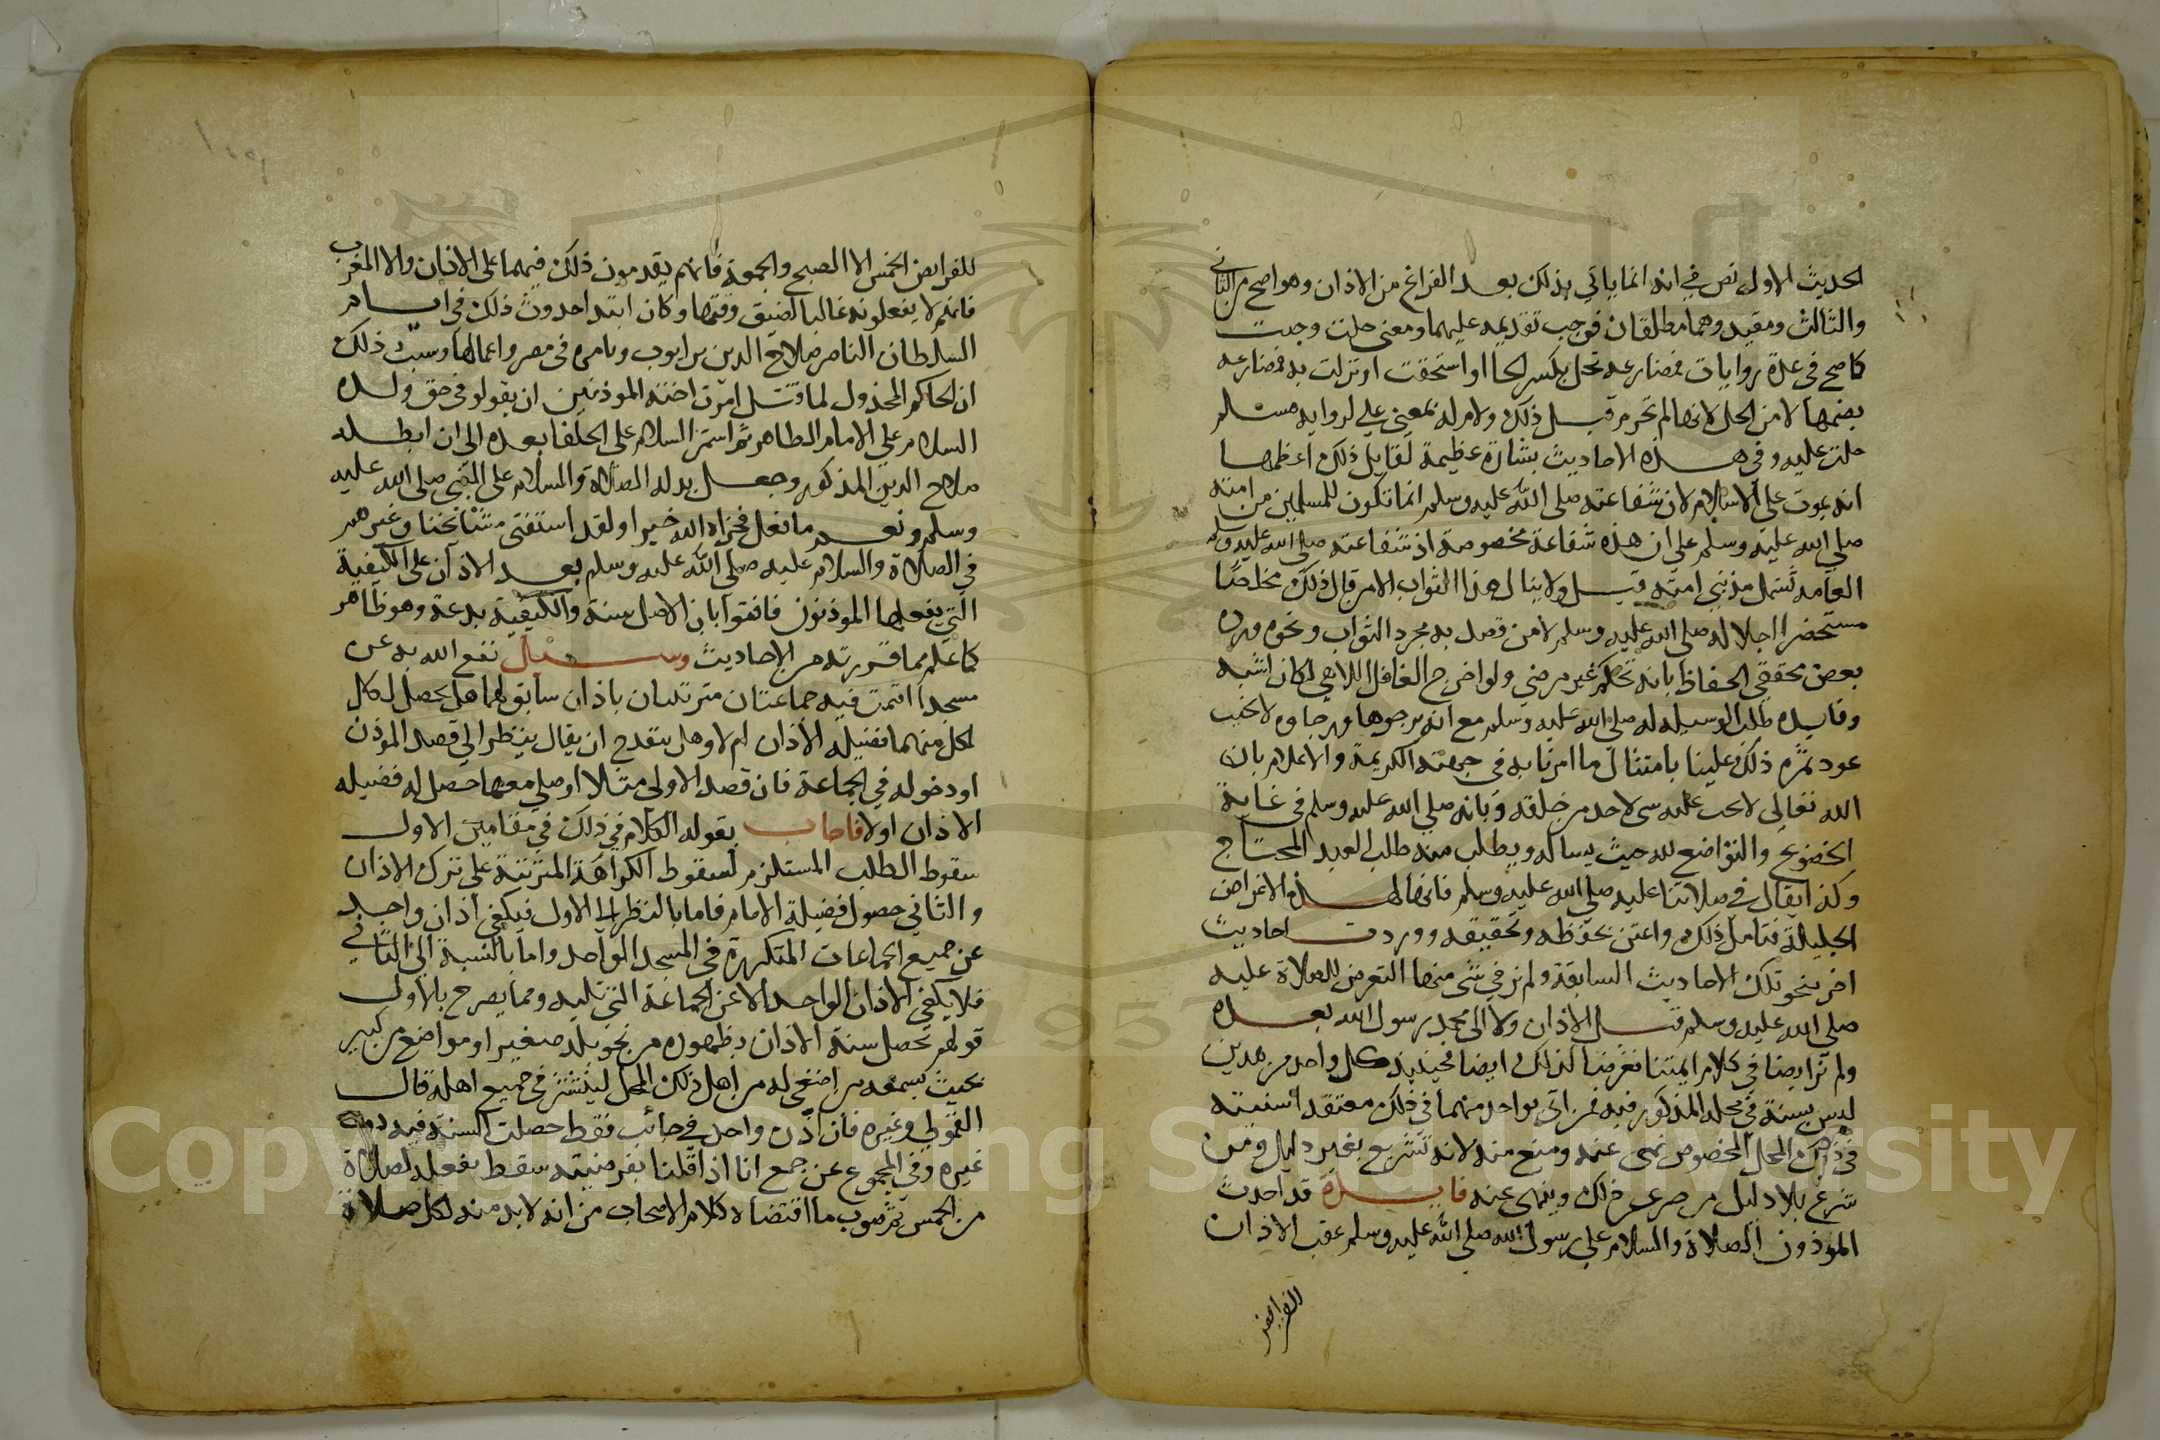 الحديث الاول نص في انه انما ياتي بذلك بعد الفراغ من الاذان وهو اصح من الثاني
والثالث ومقيد وهما مطلقان فوجب تقديمه عليهما ومعنى حلت وجبت
كما صح في عدة روايات فمضارعه تحل بكسر الحا او استحقت او نزلت به فمضارعه
بضمها لا من الحل لانها لم تحرم قبل ذلك ولام له بمعنى على لرواية مسلم
حلت عليه وفي هذه الاحاديث بشارة عظيمة لقايل ذلك اعظمها
انه يموت على الاسلام لان شفاعته صلى الله عليه وسلم انما تكون للمسلمين من امته
صلى الله عليه وسلم على ان هذه شفاعة مخصوصة اذ شفاعته صلى الله عليه وسلم
العامه تشمل مذنبي امته قيل ولا ينال هذا الثواب الا من قال ذلك مخلصا
مستحضرا اجلاله صلى الله عليه وسلم لا من قصد به مجرد الثواب ونحوه ورده
بعض محققي الحفاظ بانه تحكم غير مرضي ولو اخرج الغافل اللاهي لكان اشبه
وفايده طلب الوسيله له صلى الله عليه وسلم مع انه يرجوها ورجاوه لا يخيب
عود ثمرة ذلك علينا بامتثال ما امرنا به في جهته الكريمة والاعلام بان
الله تعالى لا يجب عليه شي لاحد من خلقه وبانه صلى الله عليه وسلم في غاية
الخضوع والتواضع لله حيث يساله ويطلب منه طلب العبد المحتاج
وكذا يقال في صلاتنا عليه صلى الله عليه وسلم فانها لهذه الاغراض
الجليلة فتامل ذلك واعتن بحفظه وتحقيقه ووردت احاديث
اخر بنحو تلك الاحاديث السابقة ولم نر في شي منها التعرض للصلاة عليه
صلى الله عليه وسلم قبل الاذان ولا الى محمد رسول الله بعده
ولم نر ايضا في كلام ايمتنا تعرضا لذلك ايضا فحينيذ كل واحد من هذين
ليس بسنة في محله المذكور فيه فمن اتى بواحد منهما في ذلك معتقدا سنيته
في ذلك المحل المخصوص نهى عنه ومنع منه لانه تشريع بغير دليل ومن
شرع بلا دليل يزجر عن ذلك وينهى عنه فايدة قد احدث
الموذنون الصلاة والسلام على رسول الله صلى الله عليه وسلم عقب الاذان
للفرايض
للفرايض الخمس الا الصبح والجمعة فانهم يقدمون ذلك فيهما على الاذان والا المغرب
فانهم لا يفعلونه غالبا لضيق وقتها وكان ابتدا حدوث ذلك في ايام
السلطان الناصر صلاح الدين بن ايوب وبامره في مصر واعمالها وسبب ذلك
ان الحاكم المخذول لما قتل امرت اخته الموذنين ان يقولو في حق ولده
السلام على الامام الطاهر ثم استمر السلام على الخلفا بعده الى ان ابطله
صلاح الدين المذكور وجعل بدله الصلاة والسلام على النبي صلى الله عليه
وسلم ونعم ما فعل فجزاه الله خيرا ولقد استفتى مشايخنا وغيرهم
في الصلاة والسلام عليه صلى الله عليه وسلم بعد الاذان على الكيفية
التي يفعلها الموذنون فافتوا بان الاصل سنة والكيفية بدعة وهو ظاهر
كما علم مما قررته من الاحاديث وسئل نفع الله به عن
مسجد اقيمت فيه جماعتان مترتبتان باذان سابق لهما هل يحصل لكل
لكل منهما فضيلة الاذان ام لا وهل يتقدح ان يقال ينظر الى قصد الموذن
او دخوله في الجماعة فان قصد الاولى مثلا او صلى معها حصل له فضيله
الاذان او لا فاجاب بقوله الكلام في ذلك في مقامين الاول
سقوط الطلب المستلزم لسقوط الكراهة المترتبة على ترك الاذان
والثاني حصول فضيلة الامام فاما بالنظر الى الاول فيكفي اذان واحد
عن جميع الجماعات المتكررة في المسجد الواحد واما بالنسبة الى الثاني
فلا يكفي الاذان الواحد الا عن الجماعة التي تليه ومما يصرح بالاول
قولهم تحصل سنة الاذان بظهوره من نحو بلد صغير او مواضع من كبير
بحيث يسمعه من اصغى له من اهل ذلك المحل لينتشر في جميع اهله قال
القمولي وغيره فان اذن واحد في جانب فقط حصلت السنة فيه دون
غيره وفي المجموع عن جمع انا اذا قلنا بفرضيته سقط بفعله لصلاة
من الخمس ثم صوب ما اقتضاه كلام الاصحاب من انه لابد منه لكل صلاة
Copyright © King Saud University
1957